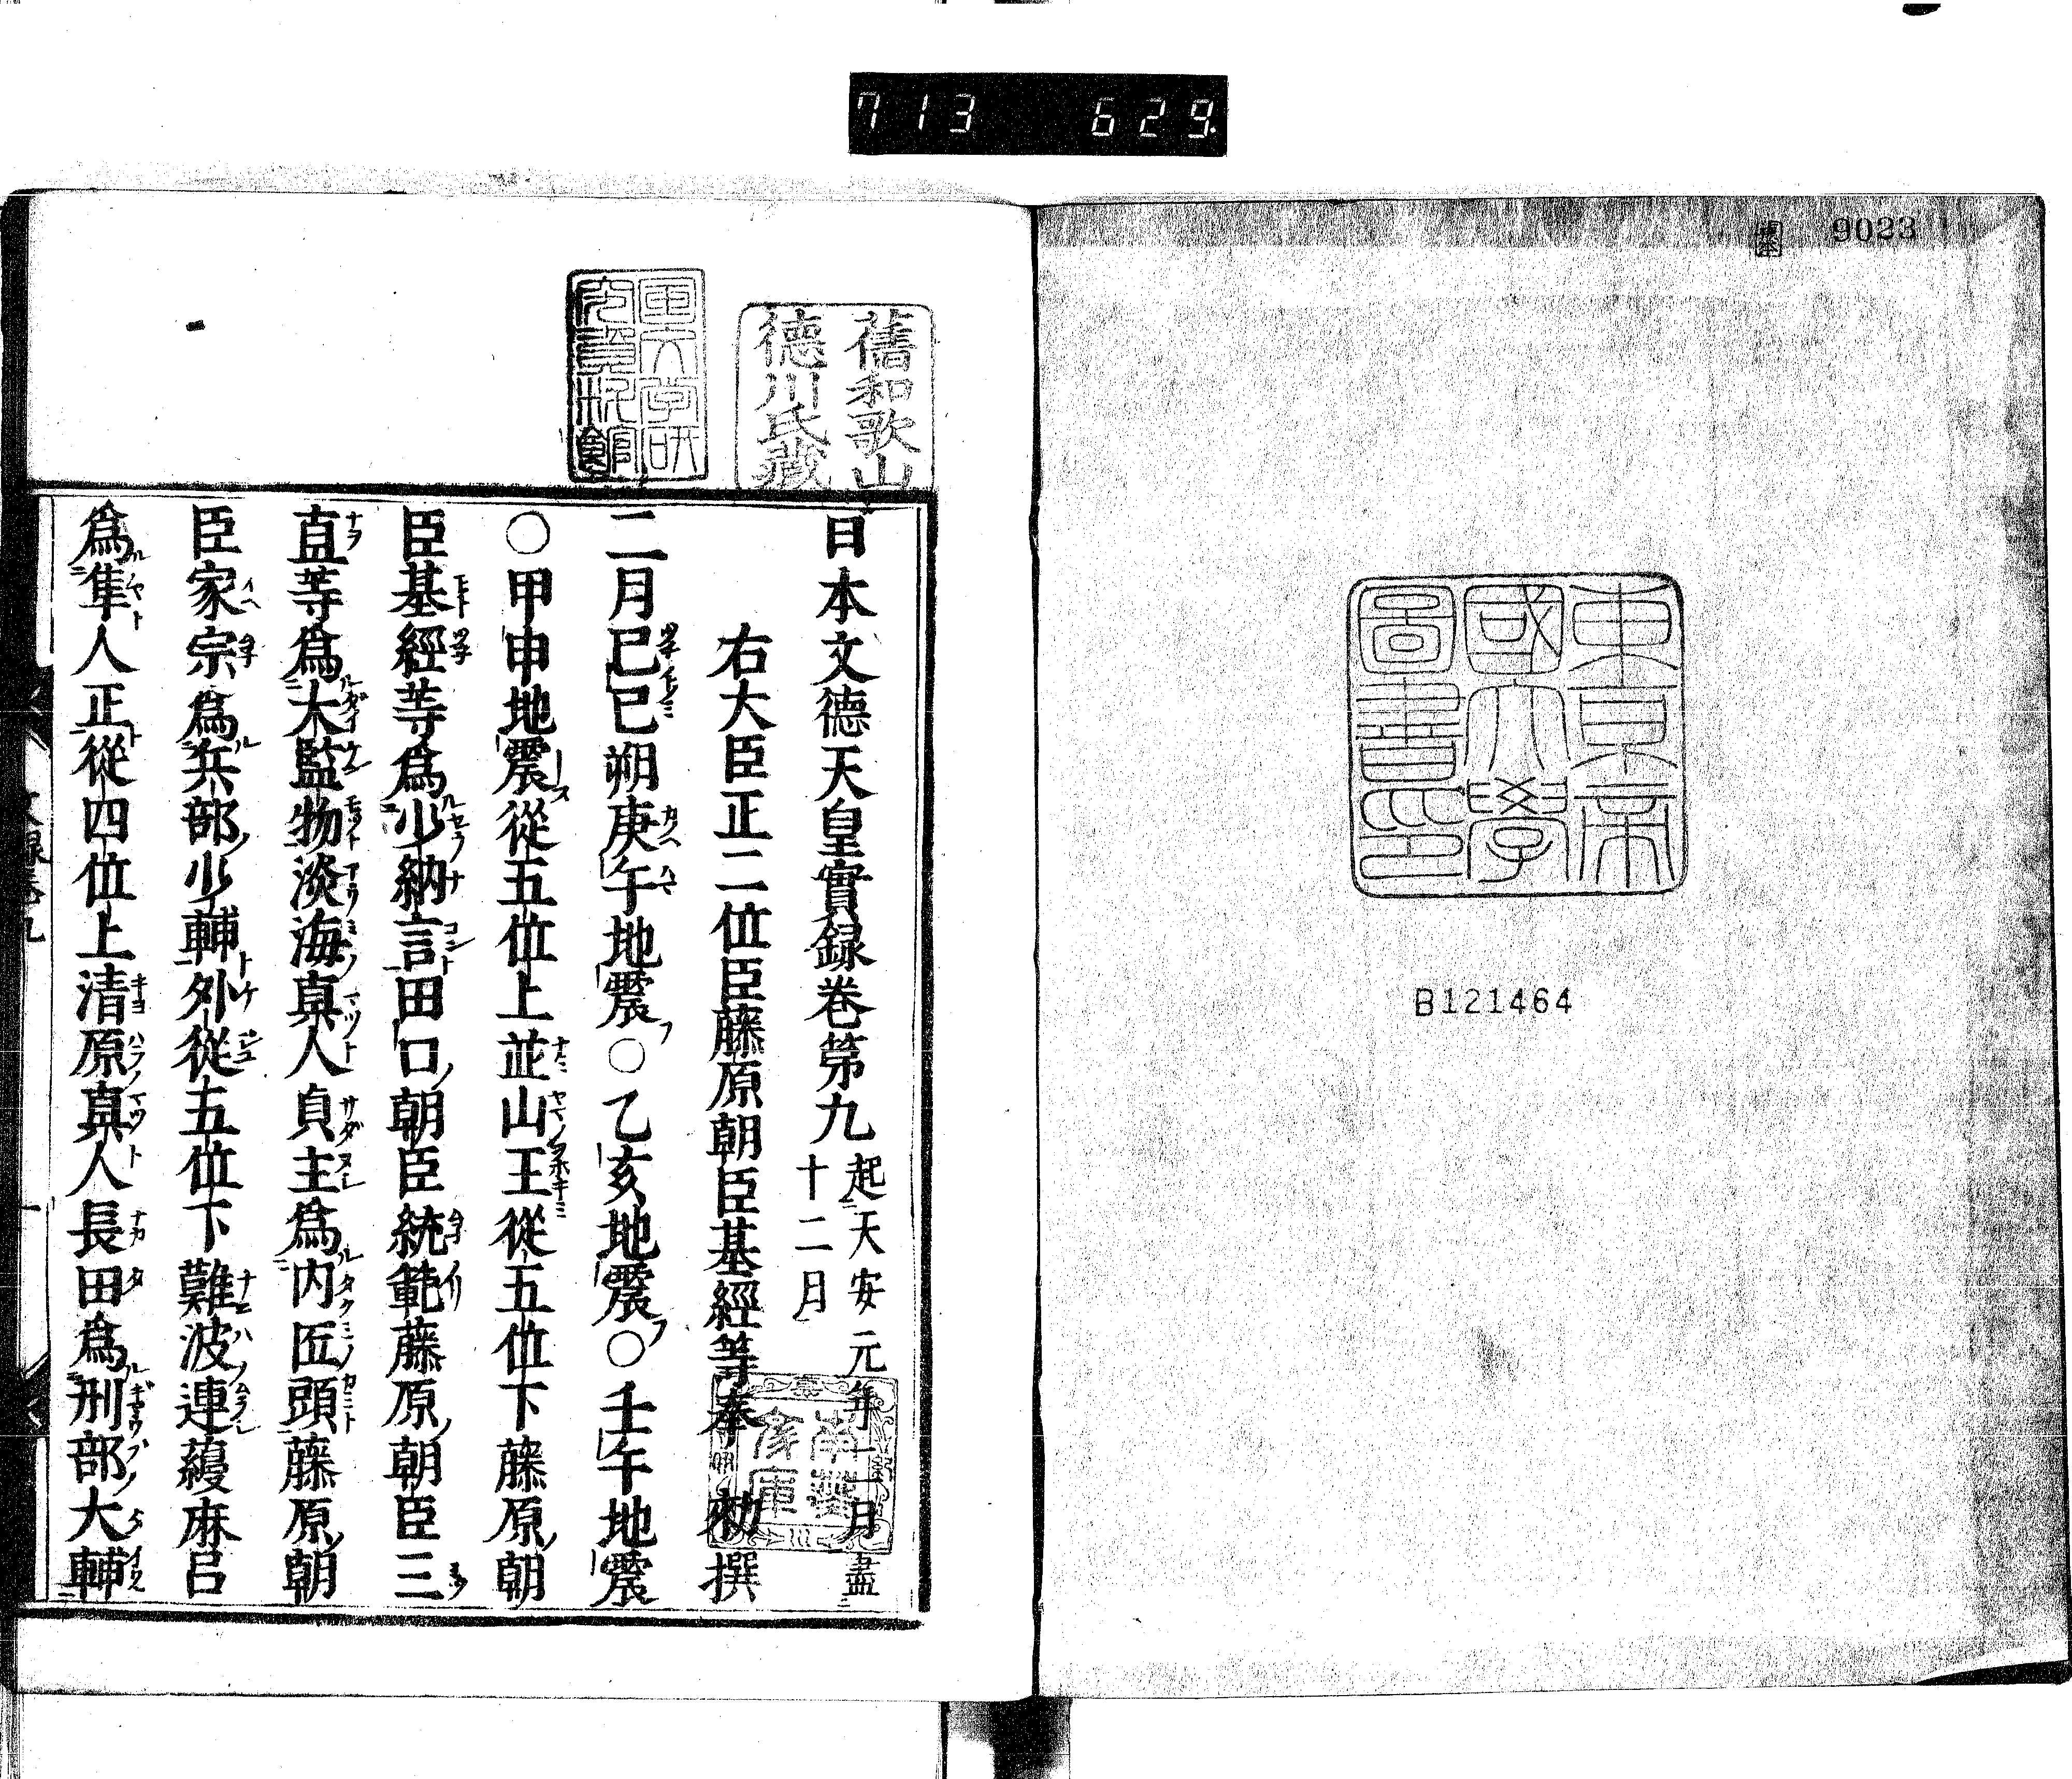 713 629
9023
東京帝
國大學
圖書印
B121464
舊和歌山
德川氏藏
日本文德天皇實録卷第九 起天安元年二月盡
十二月
右大臣正二位臣藤原朝臣基經等奉 勑撰
二月己巳朔庚午地震○乙亥地震○壬午地震
○甲申地震從五位上並山王從五位下藤原朝
臣基經等爲少納言田口朝臣統範藤原朝臣三
直等爲大監物淡海真人貞主爲内匠頭藤原朝
臣家宗爲兵部少輔外從五位下難波連蘰麻呂
爲隼人正從四位上清原真人長田爲刑部大輔